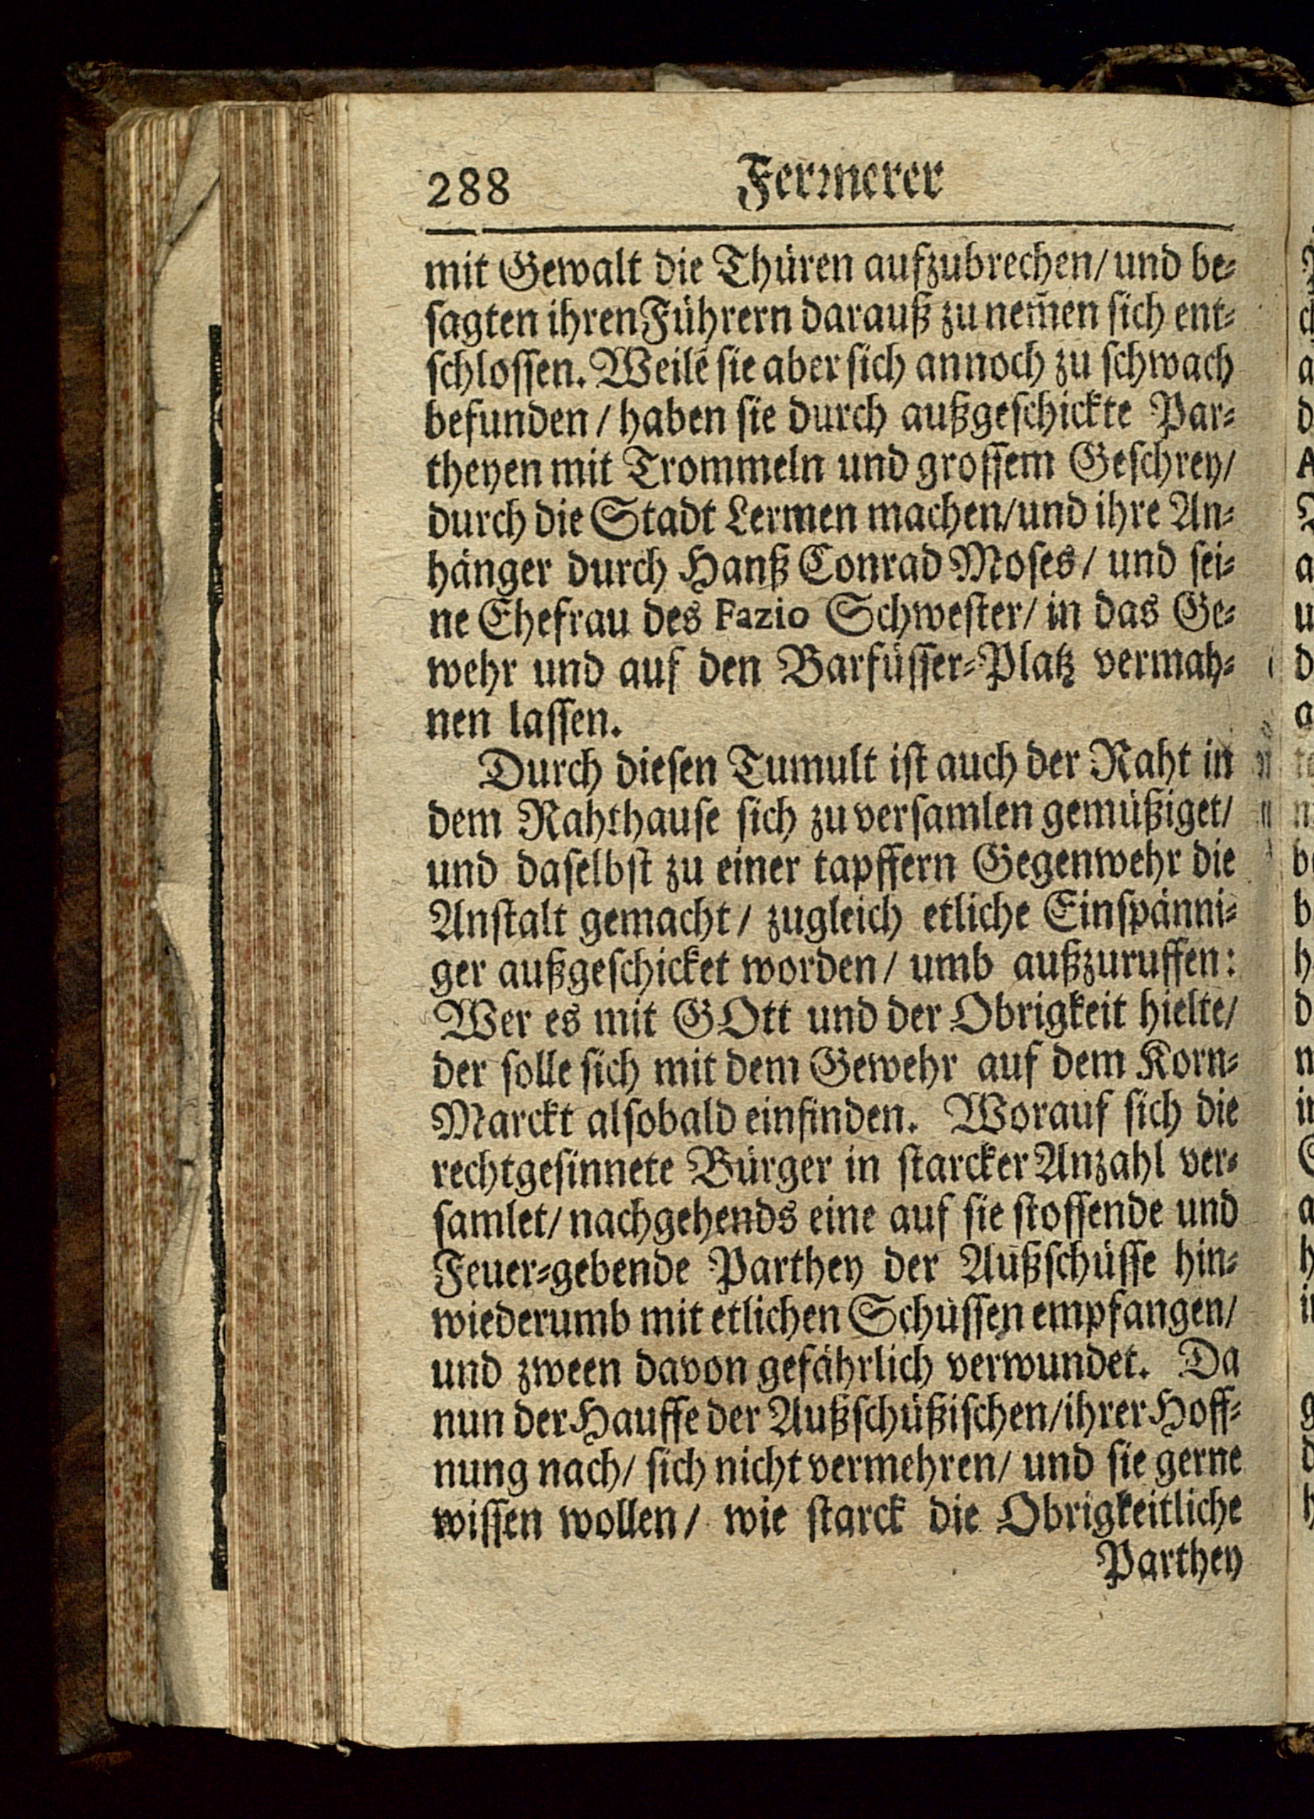 288 Fermerer
mit Gewalt die Thüren aufzubrechen/ und be-
sagten ihren Führern darauß zu nem̃en sich ent-
schlossen. Weilẽ sie aber sich annoch zu schwach
befunden / haben sie durch außgeschickte Par-
theyen mit Trommeln und grossem Geschrey/
durch die Stadt Lermen machen/ und ihre An-
hänger durch Hanß Conrad Moses / und sei-
ne Ehefrau des Fazio Schwester/ in das Ge-
wehr und auf den Barfüsser-Platz vermah-
nen lassen.
Durch diesen Tumult ist auch der Raht in
dem Rahthause sich zu versamlen gemüßiget/
und daselbst zu einer tapffern Gegenwehr die
Anstalt gemacht / zugleich etliche Einspänni-
ger außgeschicket worden / umb außzuruffen:
Wer es mit GOtt und der Obrigkeit hielte/
der solle sich mit dem Gewehr auf dem Korn-
Marckt alsobald einfinden. Worauf sich die
rechtgesinnete Bürger in starcker Anzahl ver-
samlet/ nachgehends eine auf sie stossende und
Feuer-gebende Parthey der Außschüsse hin-
wiederumb mit etlichen Schüssen empfangen/
und zween davon gefährlich verwundet. Da
nun der Hauffe der Außschüßischen/ ihrer Hoff-
nung nach/ sich nicht vermehren/ und sie gerne
wissen wollen / wie starck die Obrigkeitliche
Parthey